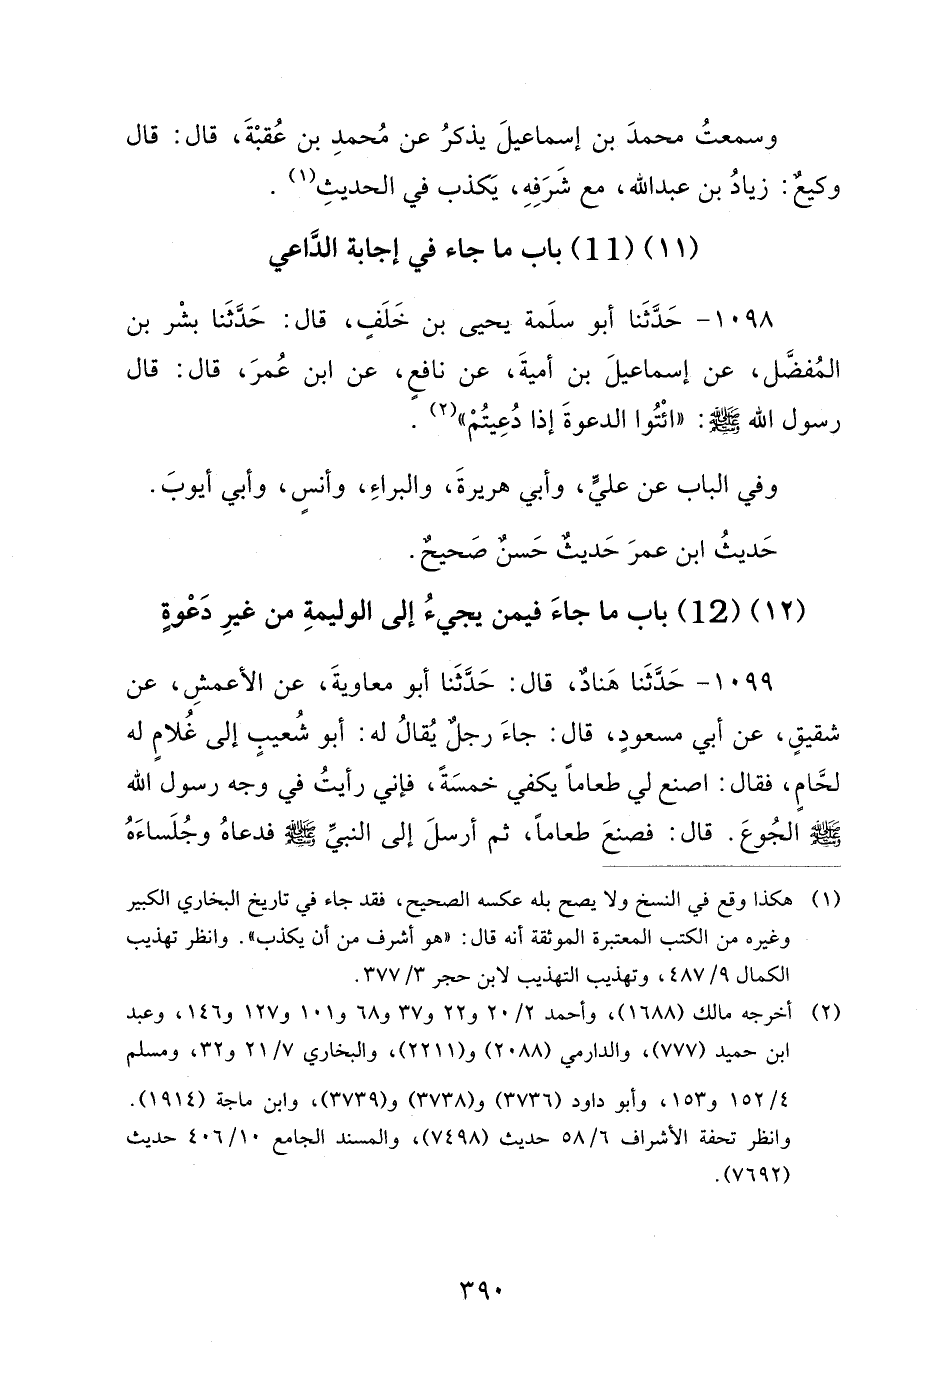 وسمعتُ محمدَ بن إسماعيلَ يذكرُ عن مُحمدِ بن عُقبْةَ، قال: قال
وكيعٌ: زيادُ بن عبدالله، مع شَرَفِهِ، يَكذب في الحديثِ(١) .
(١١) (11) باب ما جاء في إجابة الدَّاعي
١٠٩٨- حَدَّثَنا أبو سلَمة يحيى بن خَلَفٍ، قال: حَدَّثَنا بشْر بن
المُفضَّل، عن إسماعيلَ بن أميةَ، عن نافعٍ، عن ابن عُمرَ، قال: قال
رسول الله ﷺ: «ائْتُوا الدعوةَ إذا دُعِيتُمْ»(٢) .
وفي الباب عن عليٍّ، وأبي هريرةَ، والبراءِ، وأنسٍ، وأبي أيوبَ.
حَديثُ ابن عمرَ حَديثٌ حَسنٌ صَحيحٌ.
(١٢) (12) باب ما جاءَ فيمن يجيءُ إلى الوليمةِ من غيرِ دَعْوةٍ
١٠٩٩- حَدَّثَنا هَنادٌ، قال: حَدَّثَنا أبو معاويةَ، عن الأعمشِ، عن
شقيقٍ، عن أبي مسعودٍ، قال: جاءَ رجلٌ يُقالُ له: أبو شُعيبٍ إلى غُلامٍ له
لحَّامٍ، فقال: اصنع لي طعاماً يكفي خمسَةً، فإني رأيتُ في وجه رسول الله
ﷺ الجُوعَ. قال: فصنعَ طعاماً، ثم أرسلَ إلى النبيِّ ﷺ فدعاهُ وجُلَساءَهُ
(١) هكذا وقع في النسخ ولا يصح بله عكسه الصحيح، فقد جاء في تاريخ البخاري الكبير
وغيره من الكتب المعتبرة الموثقة أنه قال: «هو أشرف من أن يكذب». وانظر تهذيب
الكمال ٩/ ٤٨٧، وتهذيب التهذيب لابن حجر ٣/ ٣٧٧.
(٢) أخرجه مالك (١٦٨٨)، وأحمد ٢/ ٢٠ و٢٢ و٣٧ و٦٨ و١٠١ و١٢٧ و١٤٦، وعبد
ابن حميد (٧٧٧)، والدارمي (٢٠٨٨) و(٢٢١١)، والبخاري ٧/ ٢١ و٣٢، ومسلم
٤/ ١٥٢ و١٥٣، وأبو داود (٣٧٣٦) و(٣٧٣٨) و(٣٧٣٩)، وابن ماجة (١٩١٤).
وانظر تحفة الأشراف ٦/ ٥٨ حديث (٧٤٩٨)، والمسند الجامع ١٠/ ٤٠٦ حديث
(٧٦٩٢).
٣٩٠